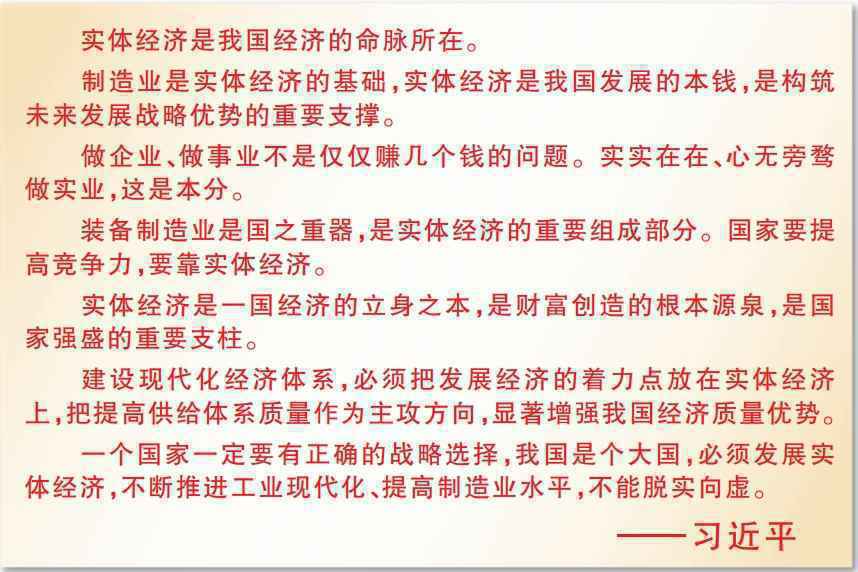 实体经济是我国经济的命脉所在。
制造业是实体经济的基础,实体经济是我国发展的本钱,是构筑
未来发展战略优势的重要支撑。
做企业、做事业不是仅仅赚几个钱的问题。实实在在、心无旁骛
做实业,这是本分。
装备制造业是国之重器,是实体经济的重要组成部分。国家要提
高竞争力,要靠实体经济。
实体经济是一国经济的立身之本,是财富创造的根本源泉,是国
家强盛的重要支柱。
建设现代化经济体系,必须把发展经济的着力点放在实体经济
上,把提高供给体系质量作为主攻方向,显著增强我国经济质量优势。
一个国家一定要有正确的战略选择,我国是个大国,必须发展实
体经济,不断推进工业现代化、提高制造业水平,不能脱实向虚。
——习近平